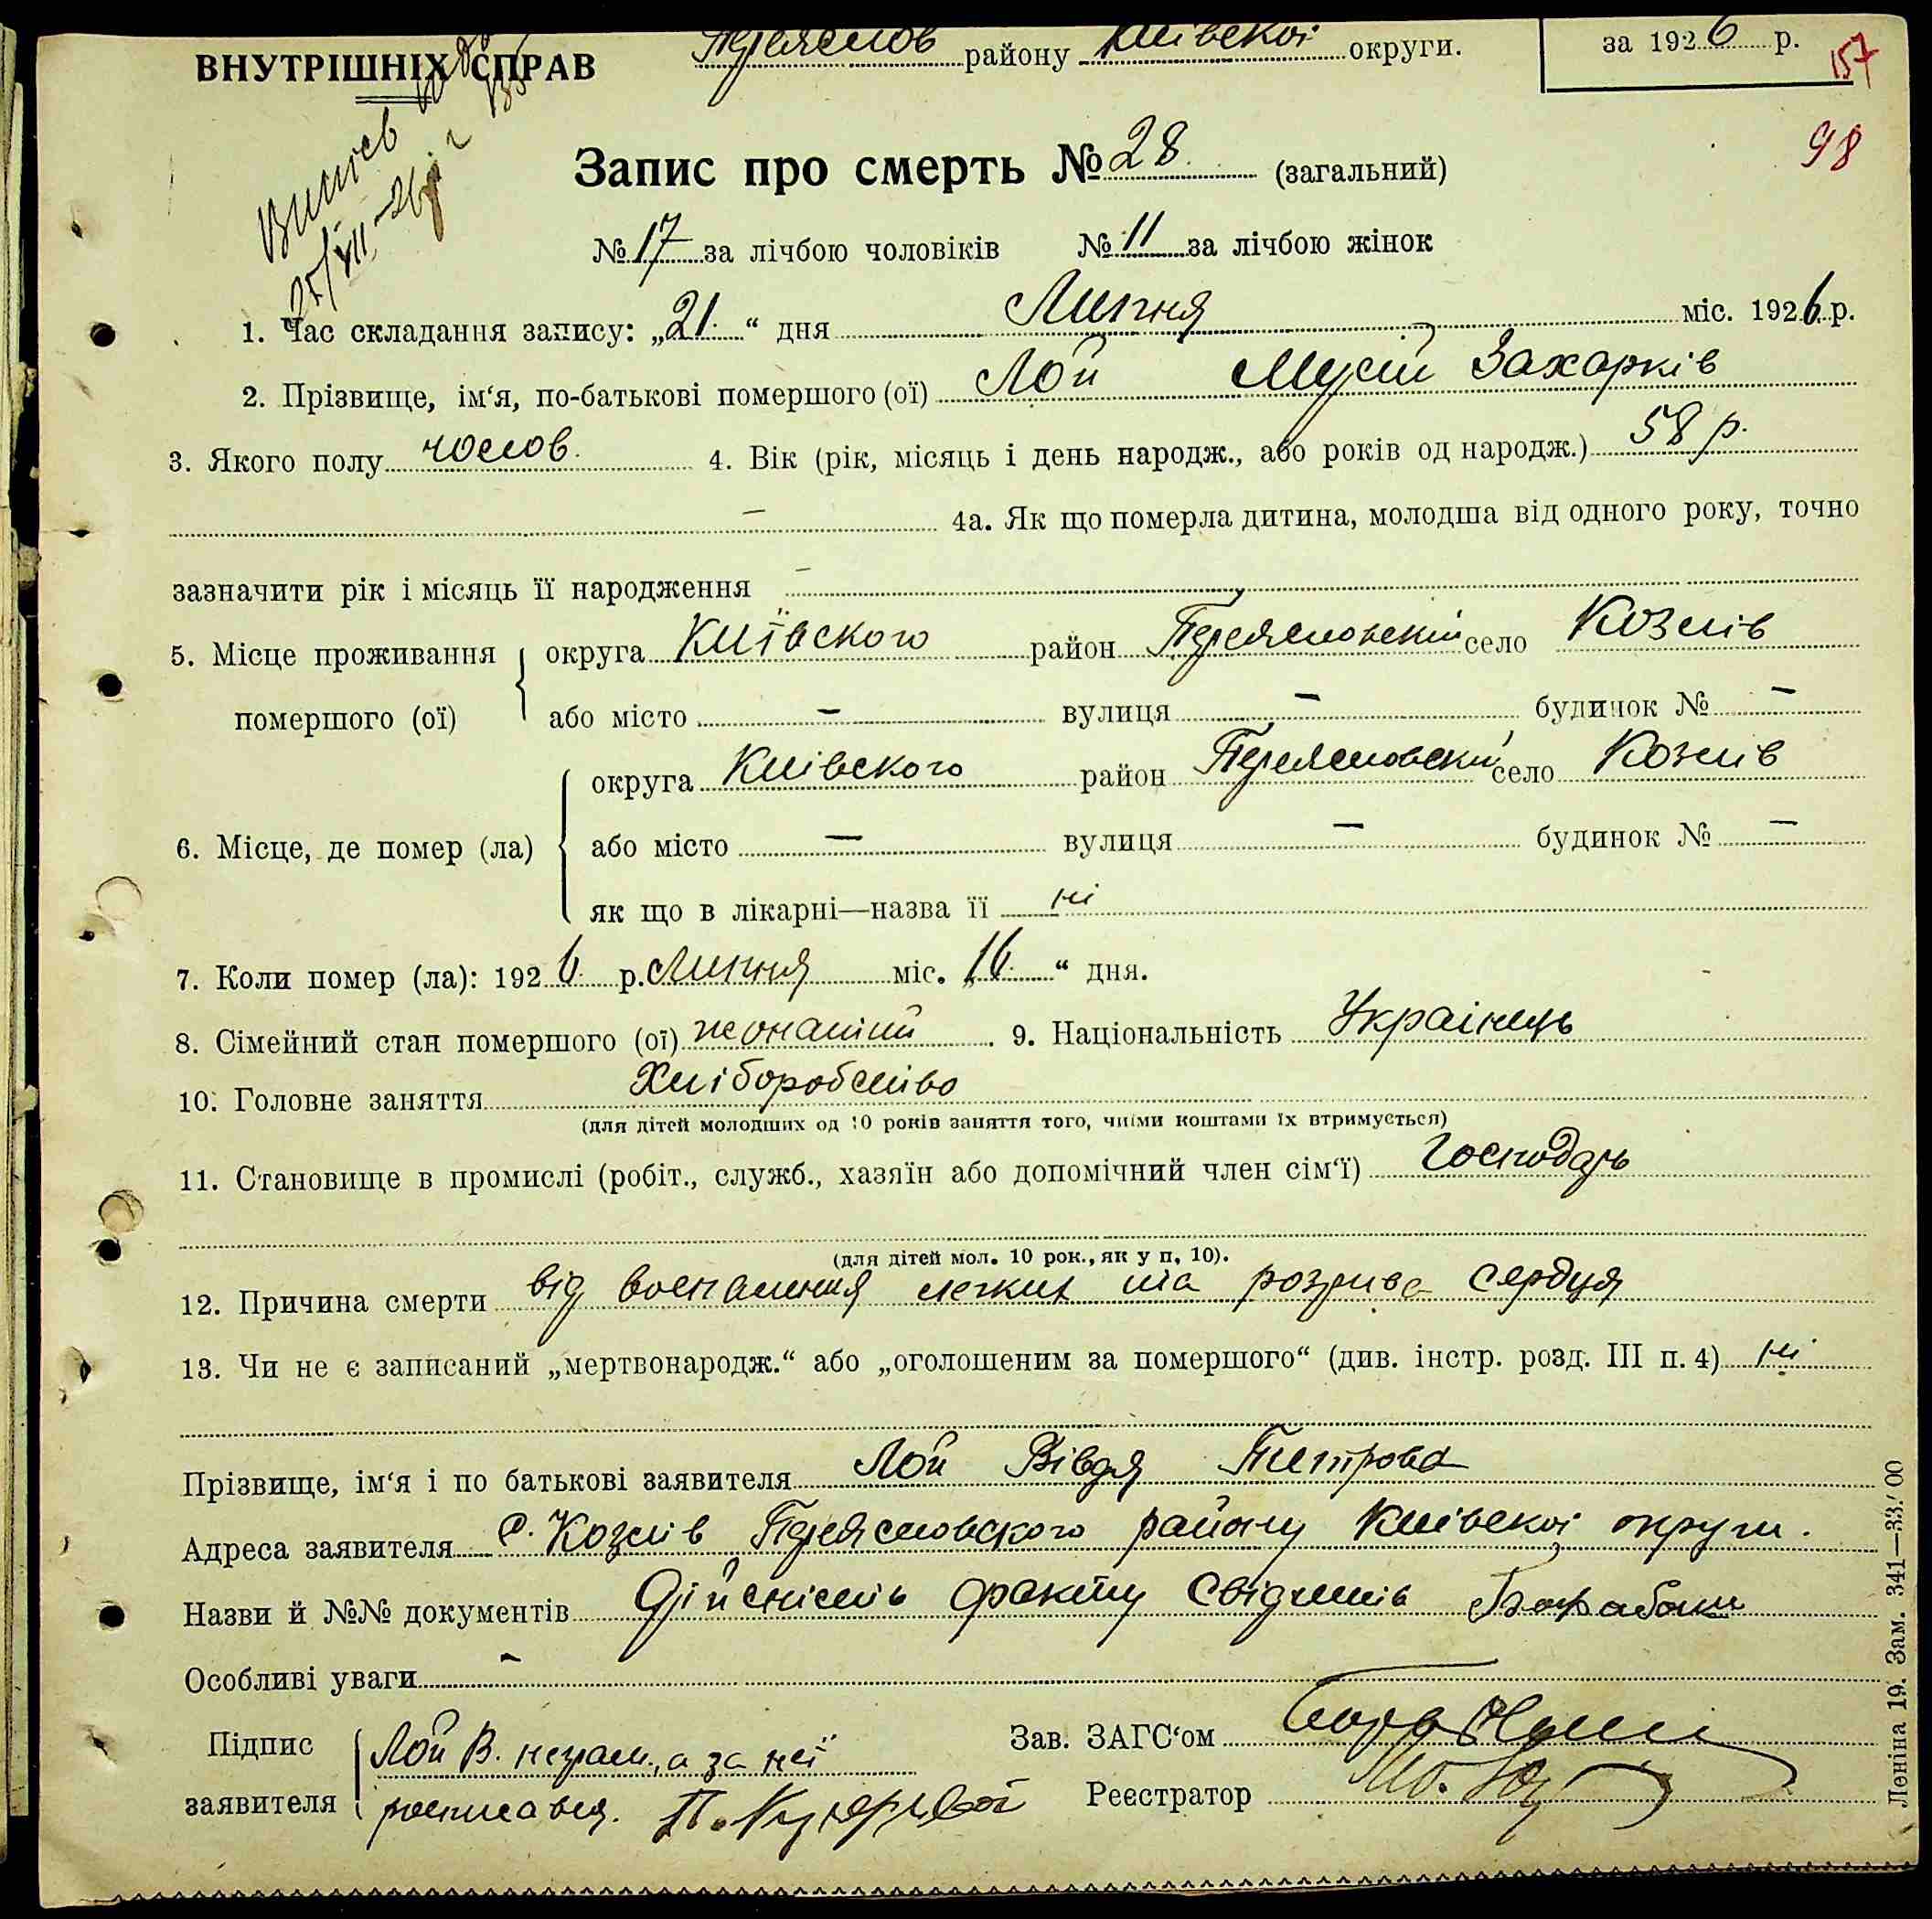 ВНУТРІШНІХ СПРАВ
Переяслов району Київскої округи.
за 1926 р.
157
98
25/VII-26 р
Запис про смерть № 28 (загальний)
№ 17 за лічбою чоловіків № 11 за лічбою жінок
1. Час складання запису: „21“ дня Липня міс. 1926 р.
2. Прізвище, ім‘я, по-батькові помершого (ої) Лой Мусій Захарків
3. Якого полу чолов. 4. Вік (рік, місяць і день народж., або років од народж.) 58 р.
– 4а. Як що померла дитина, молодша від одного року, точно
зазначити рік і місяць її народження –
5. Місце проживання помершого (ої) округа Київского район Переясловский село Козлів
або місто – вулиця – будинок № –
6. Місце, де помер (ла) округа Київского район Переясловский село Козлів
або місто – вулиця – будинок № –
як що в лікарні—назва її ні
7. Коли помер (ла): 1926 р. Липня міс. „16“ дня.
8. Сімейний стан помершого (ої) жонатий. 9. Національність Українець
10. Головне заняття Хліборобство
(для дітей молодших од 10 років заняття того, чиїми коштами їх втримується)
11. Становище в промислі (робіт., служб., хазяїн або допомічний член сім‘ї) Господарь
(для дітей мол. 10 рок., як у п. 10).
12. Причина смерти від воспалення легких та розрива сердця
13. Чи не є записаний „мертвонародж.“ або „оголошеним за помершого“ (див. інстр. розд. III п. 4) ні
Прізвище, ім‘я і по батькові заявителя Лой Вівдя Петрова
Адреса заявителя с. Козлів Переясловского району Київскої округи.
Назви й №№ документів Дійсність факту свідчить
Особливі уваги –
Підпис заявителя Лой В. неграм., а за неї
росписався.
Зав. ЗАГС‘ом
Реєстратор
Леніна 19. Зам. 341—33.